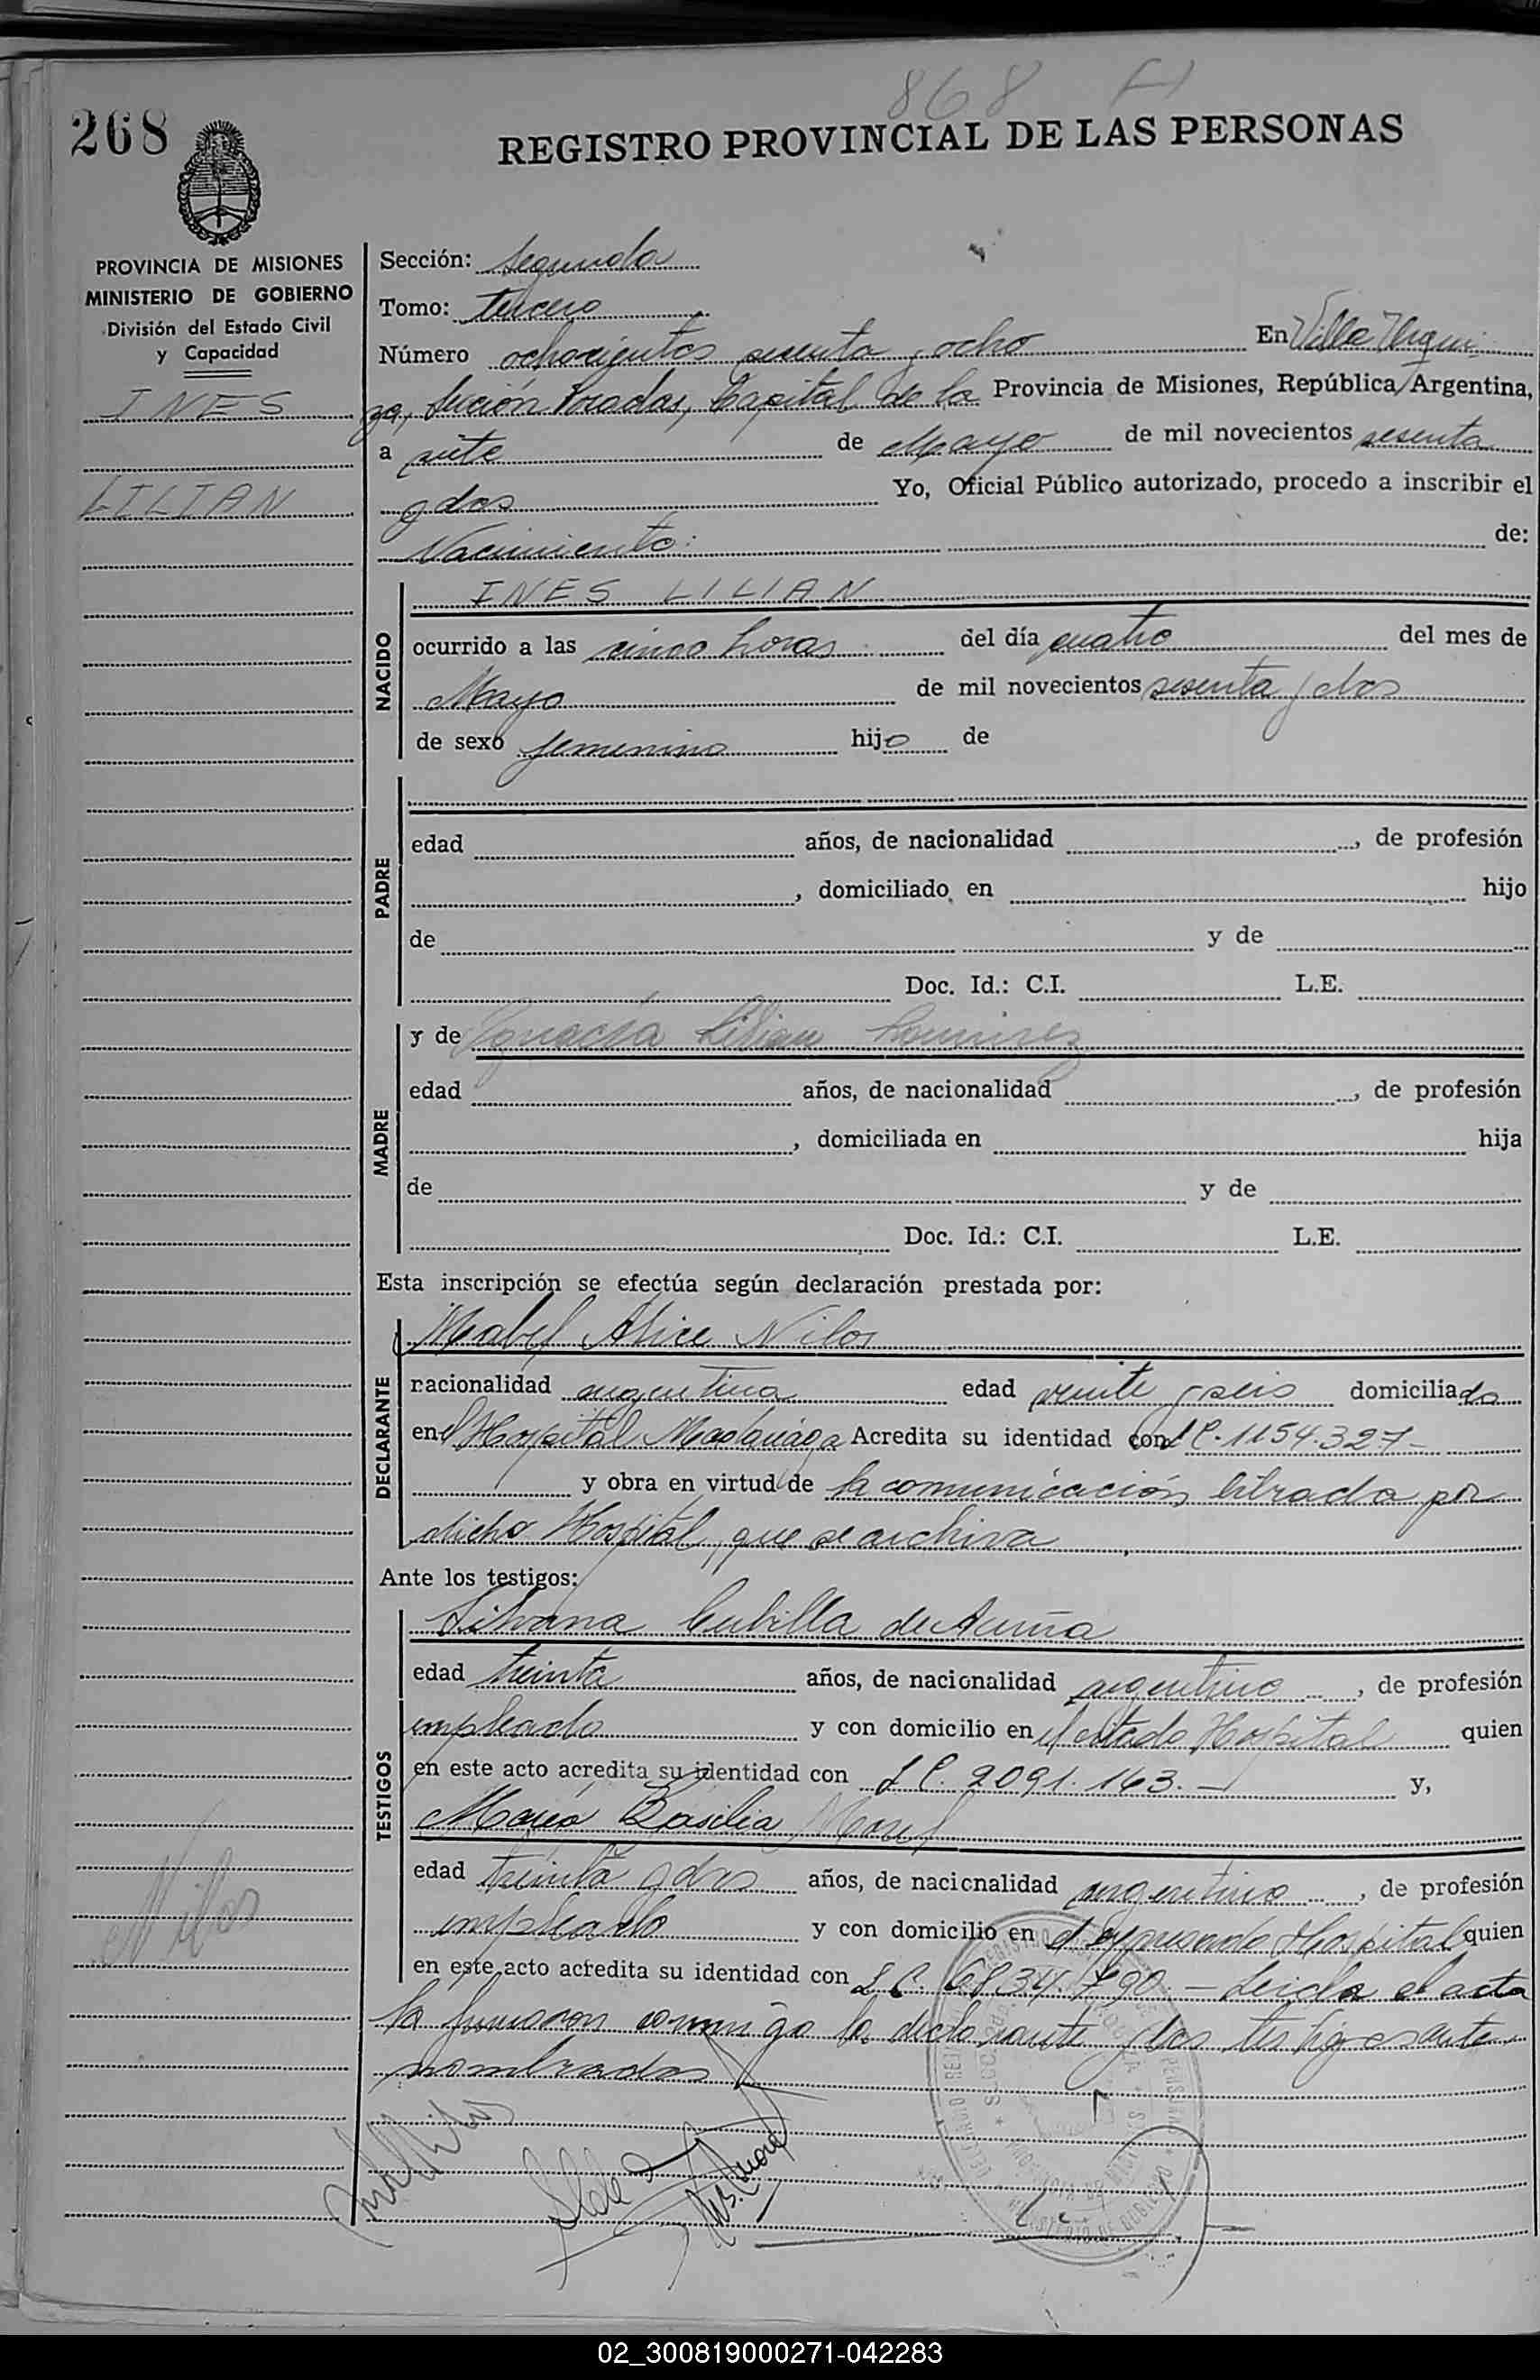 868
268
REGISTRO PROVINCIAL DE LAS PERSONAS
PROVINCIA DE MISIONES
MINISTERIO DE GOBIERNO
División del Estado Civil
y Capacidad
INES
LILIAN
Sección: Segunda
Tomo: tercero
Número ochocientos sesenta y ocho En Villa Urqui-
za, Sección Posadas, Capital de la Provincia de Misiones, República Argentina,
a siete de Mayo de mil novecientos sesenta
y dos Yo, Oficial Público autorizado, procedo a inscribir el
Nacimiento: de:
NACIDO
INES LILIAN
ocurrido a las cinco horas del día cuatro del mes de
Mayo de mil novecientos sesenta y dos
de sexo femenino hijo de
PADRE
edad años, de nacionalidad , de profesión
, domiciliado en hijo
de y de
Doc. Id.: C.I. L.E.
MADRE
y de Ignacia Lilian Ramirez
edad años, de nacionalidad , de profesión
, domiciliada en hija
de y de
Doc. Id.: C.I. L.E.
Esta inscripción se efectúa según declaración prestada por:
DECLARANTE
Mabel Alice Nilos
nacionalidad argentina edad veinte y seis domiciliada
en el Hospital Madariaga Acredita su identidad con L C. 1154.327-
y obra en virtud de la comunicación librada por
dicho Hospital, que se archiva
Ante los testigos:
TESTIGOS
Silvana Cubilla de Acuña
edad treinta años, de nacionalidad argentina , de profesión
empleada y con domicilio en el citado Hospital quien
en este acto acredita su identidad con L C. 2091.163.- y,
María Basilia Morel
edad treinta y dos años, de nacionalidad argentina , de profesión
empleada y con domicilio en el expresado Hospital quien
en este acto acredita su identidad con L C. 6834.790.- Leida el acta
la firmaron conmigo la declarante y los testigos ante
nombrados
Nilos
02_300819000271-042283